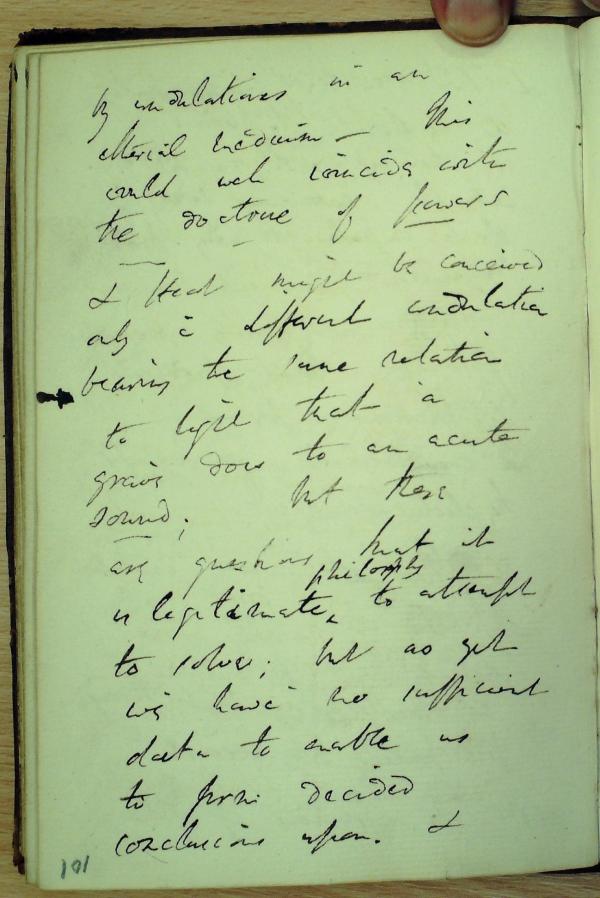 by undulations in an
etherial medium – This
would well coincide with
the doctrine of powers
& Heat might be conceived
only a different undulation
bearing the same relation
to light that a
grave does to an acute
sound; but these
are questions that it
philosophy
is legitimate to attempt
to solve; but as yet
we have no sufficient
data to enable us
to form decided
conclusions upon. &
101